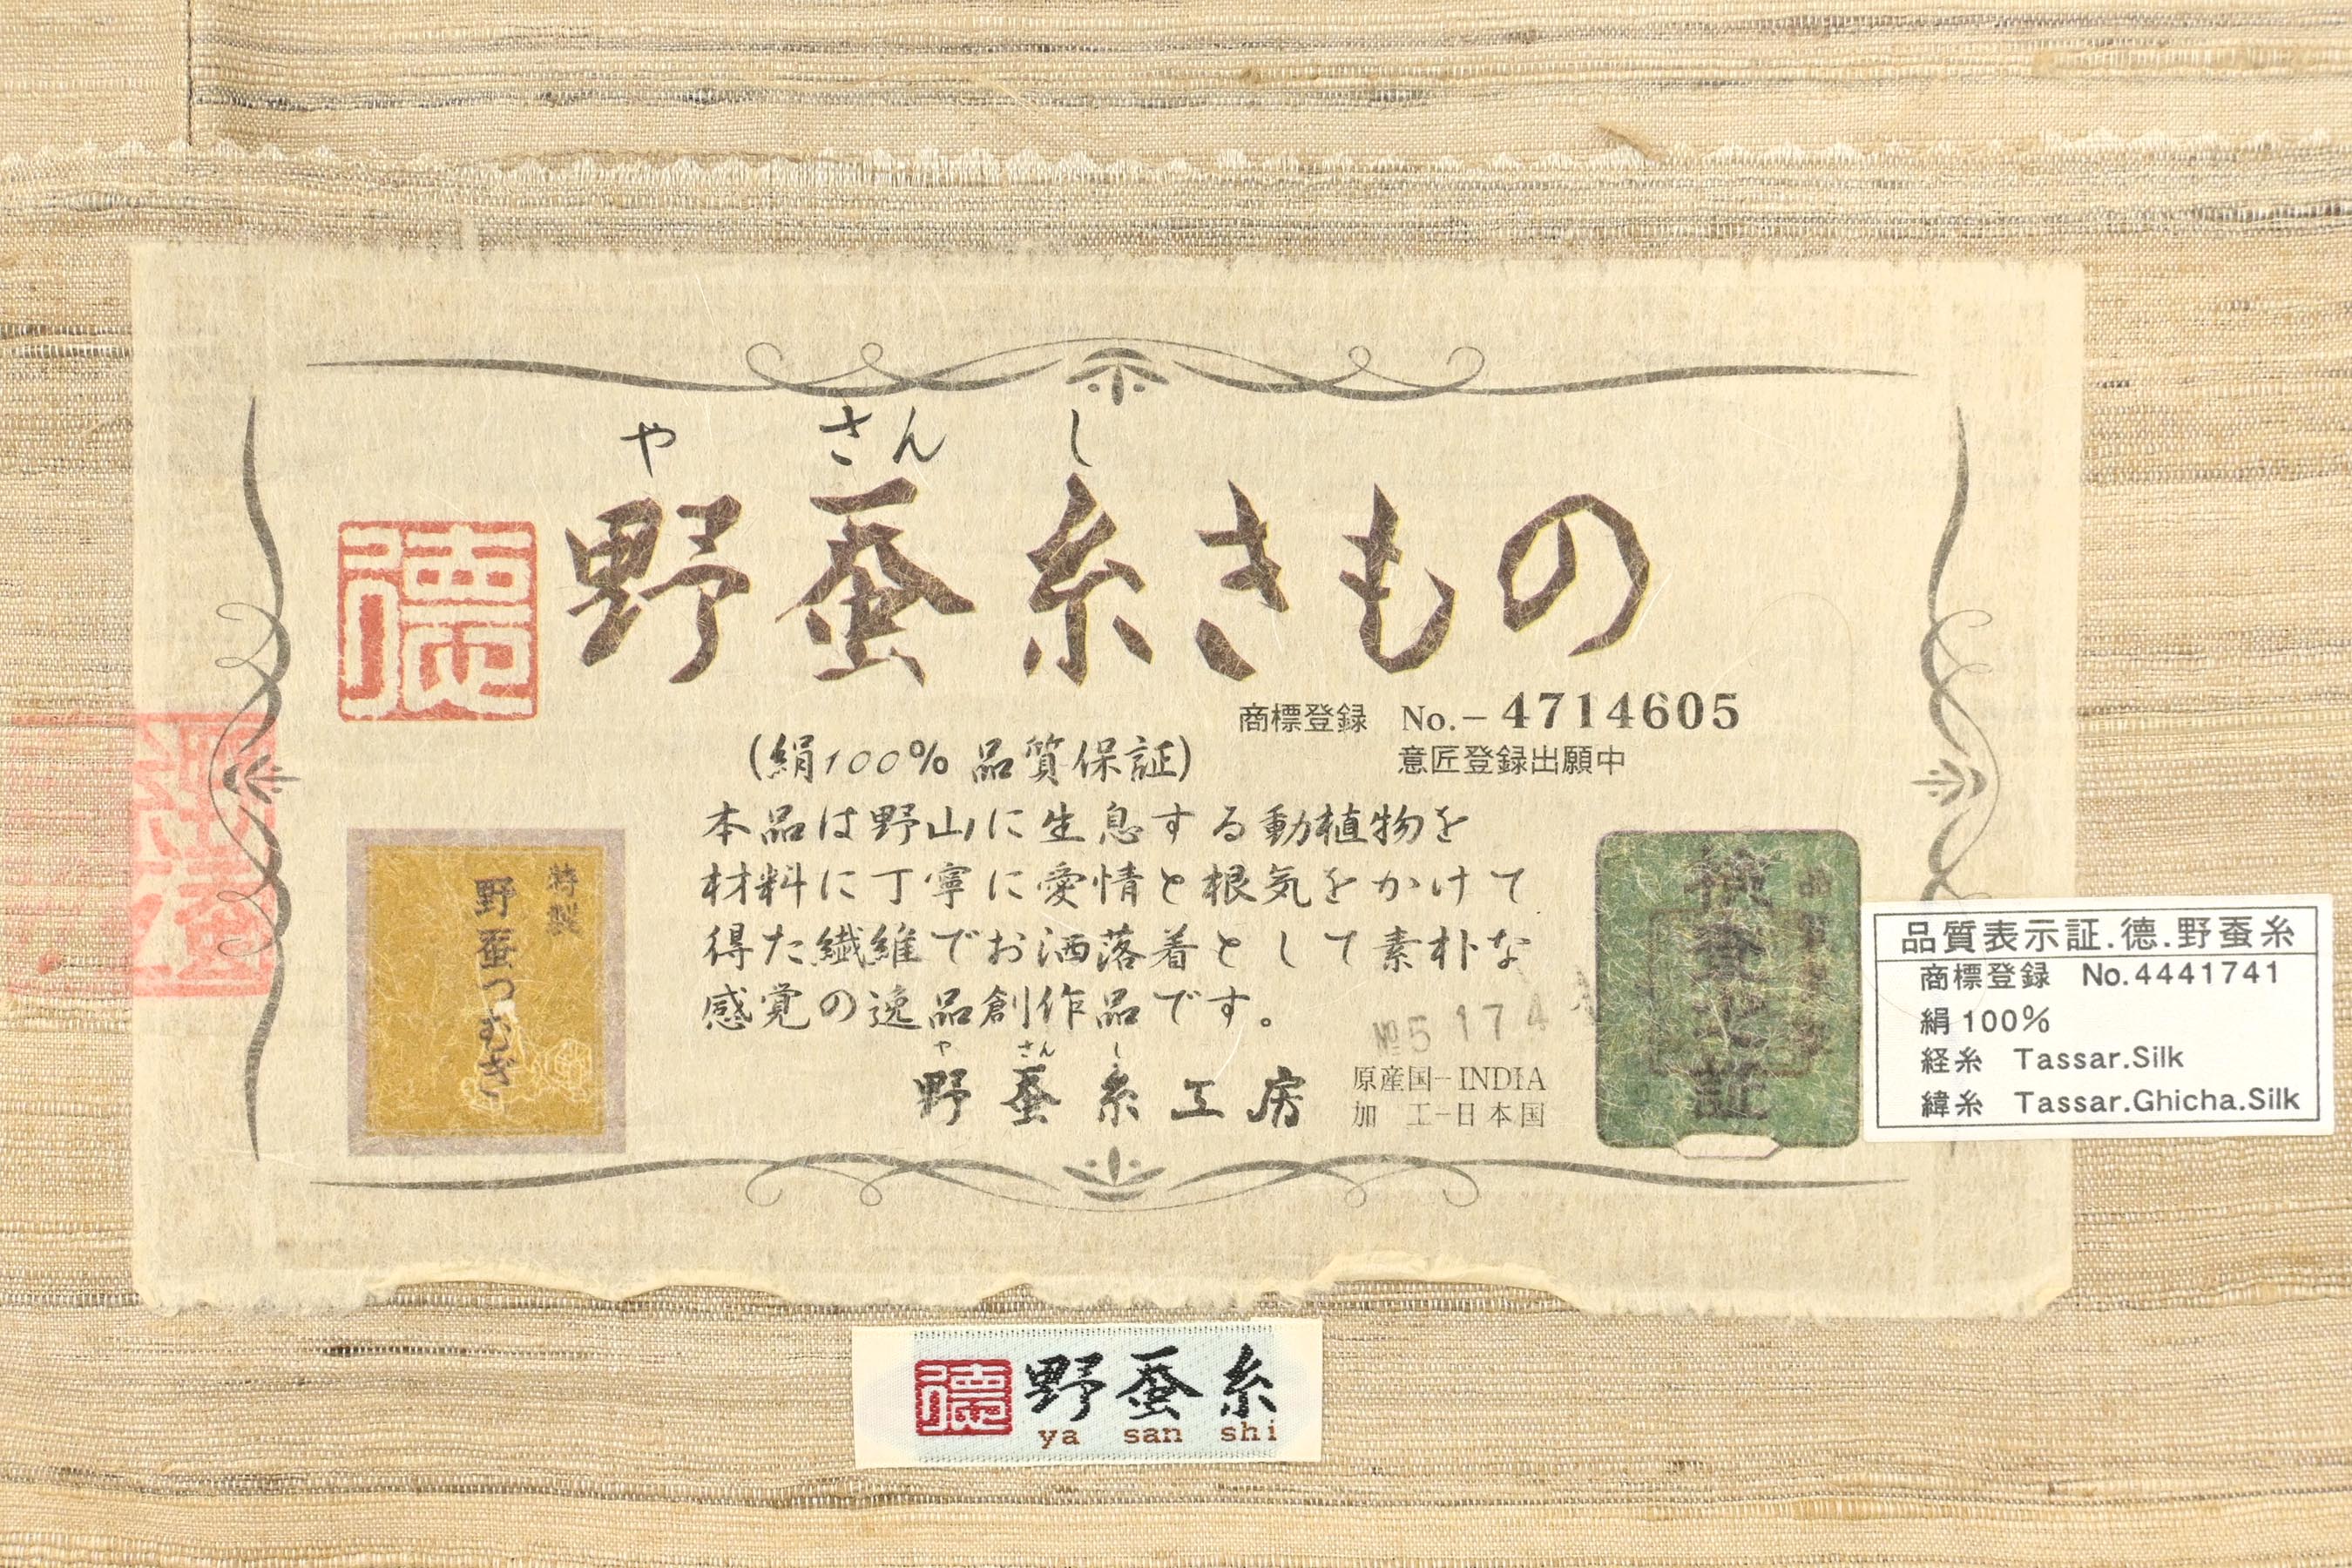 や さん し
德
野蚕糸きもの
商標登録 No.-4714605
意匠登録出願中
(絹100% 品質保証)
本品は野山に生息する動植物を
材料に丁寧に愛情と根気をかけて
得た繊維でお洒落着として素朴な
感覚の逸品創作品です。
№5174
や さん し
野蚕糸工房
原産国-INDIA
加工-日本国
特製
野蚕つむぎ
検査之証
品質表示証.德.野蚕糸
商標登録 No.4441741
絹100%
経糸 Tassar.Silk
緯糸 Tassar.Ghicha.Silk
德 野蚕糸
ya san shi